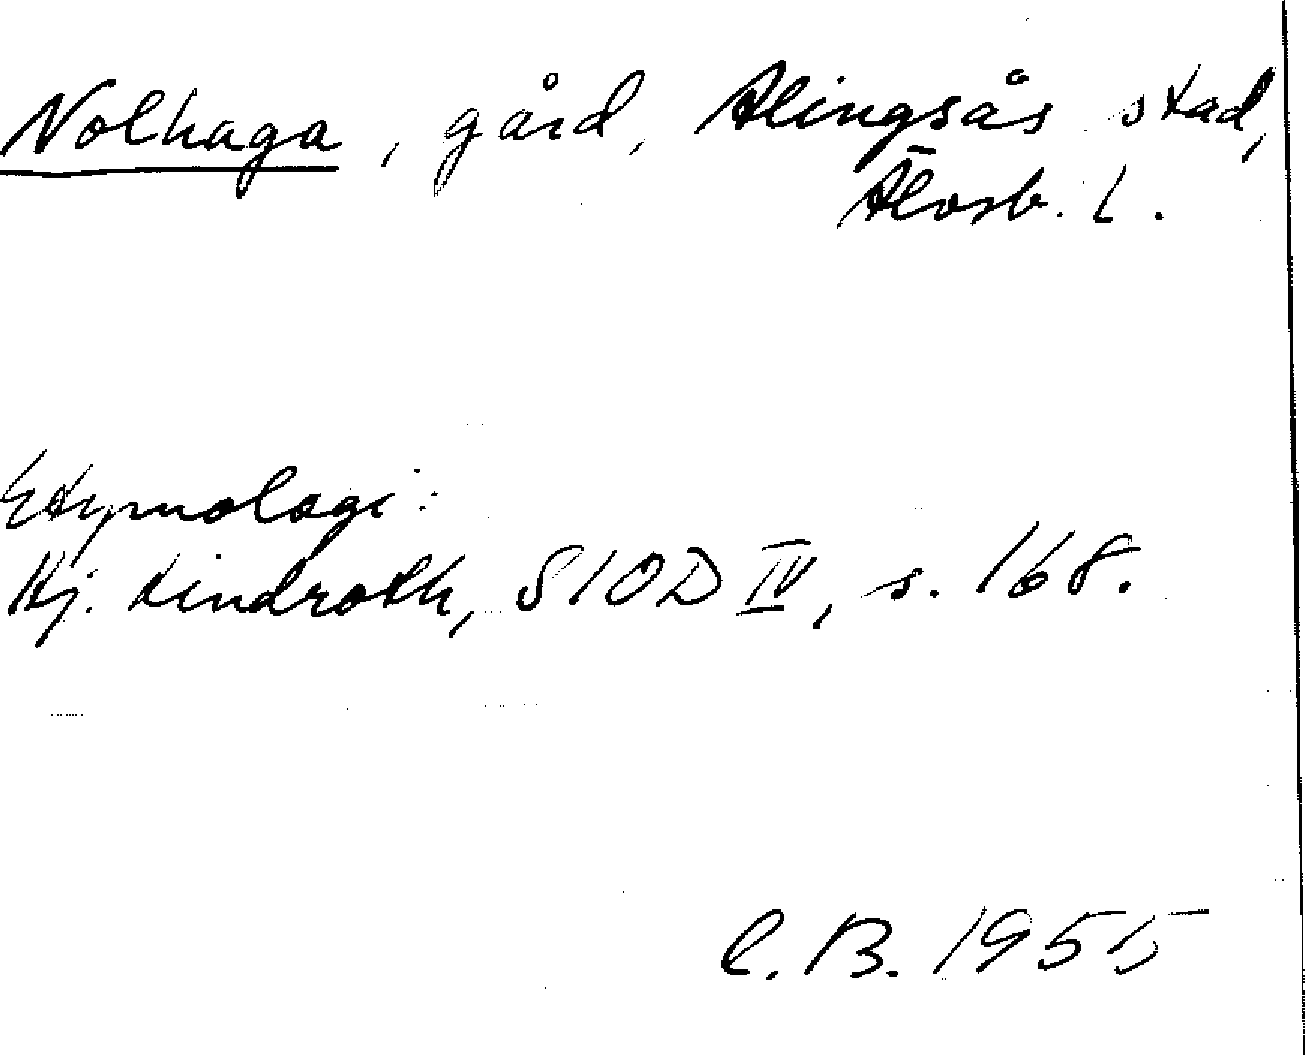 Nolhaga, gård, Alingsås stad,
Älvsb. l.
Etymologi:
Hj. Lindroth, SIOD IV, s. 168.
C.B. 1955